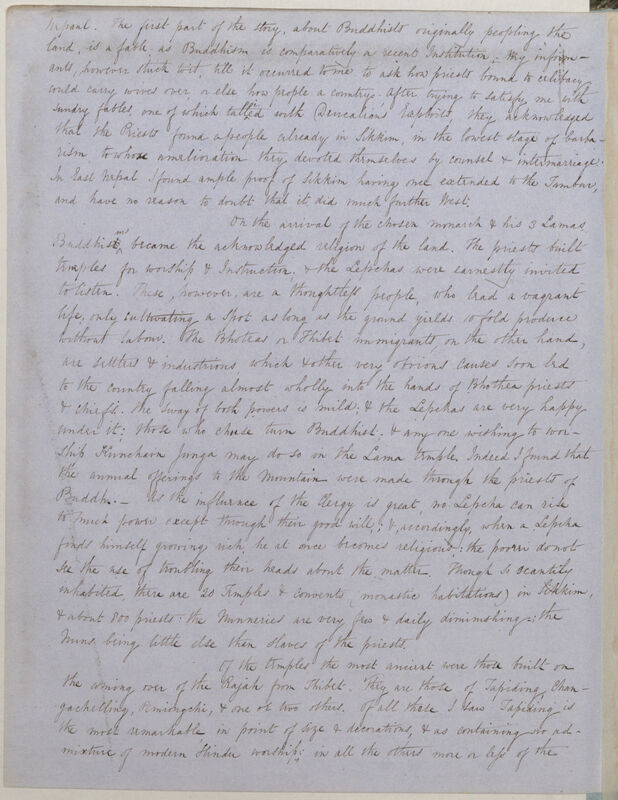 Nepaul. The first part of the story, about Buddhists originally peopling the
land, is a fable, as Buddhism is comparatively a recent Institution: My inform-
ants, however stuck to it, till it occurred to me to ask how priests bound to celibacy
could carry wives over or else how people a country. After trying to satisfy me with
sundry fables, one of which tallied with Deucalion's Exploits, they acknowledged
that the Priests found a people already in Sikkim, in the lowest stage of barba-
rism, to whose amelioration they devoted themselves by counsel & intermarriage.
In East Nepal I found ample proof of Sikkim having once extended to the Tambur,
and have no reason to doubt that it did much further West.
On the arrival of the chosen monarch & his 3 Lamas,
Buddhism became the acknowledged religion of the land. The priests built
temples for worship & Instruction, & the Lepchas were earnestly invited
to listen. These, however, are a thoughtless people, who lead a vagrant
life, only cultivating a spot as long as the ground yields 10 fold produce
without labour. The Bhoteas or Thibet immigrants on the other hand,
are settlers & industrious which & other very obvious causes soon led
to the country falling almost wholly into the hands of Bhothea priests
& chiefs. The sway of both powers is mild; & the Lepchas are very happy
under it; those who chuse turn Buddhist; & any one wishing to wor-
ship Kinchain Junga may do so in the Lama temple. Indeed I found that
the annual offerings to the Mountain were made through the priests of
Buddh. – As the influence of the Clergy is great, no Lepcha can rise
to much power except through their good will; &, accordingly, when a Lepcha
finds himself growing rich, he at once becomes religious: the poorer do not
see the use of troubling their heads about the matter. Though so scantily
inhabited there are 20 Temples & convents (monastic habitations) in Sikkim,
& about 800 priests: the Nunneries are very few & daily diminishing; the
Nuns being little else than slaves of the priests.
Of the temples the most ancient were those built on
the coming over of the Rajah from Thibet. They are those of Tapiding, Chan-
gachelling, Pemiongchi, & one or two others. Of all these I saw Tapiding is
the most remarkable in point of size & decorations, & as containing no ad-
mixture of modern Hindu worship; in all the others more or less of the